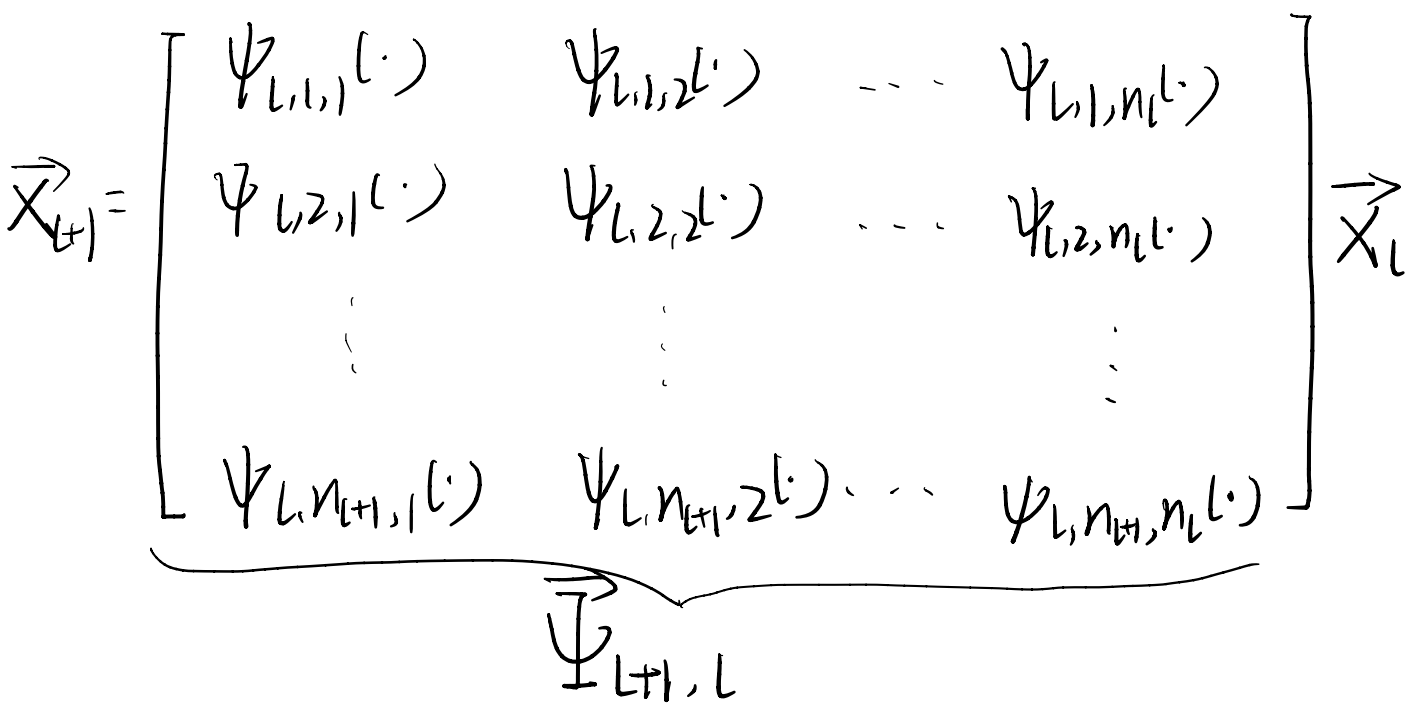 $\vec{X}_{l+1} = \begin{bmatrix} \psi_{l,1,1}(\cdot) & \psi_{l,1,2}(\cdot) & \cdots & \psi_{l,1,n_l}(\cdot) \\ \psi_{l,2,1}(\cdot) & \psi_{l,2,2}(\cdot) & \cdots & \psi_{l,2,n_l}(\cdot) \\ \vdots & \vdots & & \vdots \\ \psi_{l,n_{l+1},1}(\cdot) & \psi_{l,n_{l+1},2}(\cdot) & \cdots & \psi_{l,n_{l+1},n_l}(\cdot) \end{bmatrix} \vec{X}_l$
$\vec{\Psi}_{l+1,l}$